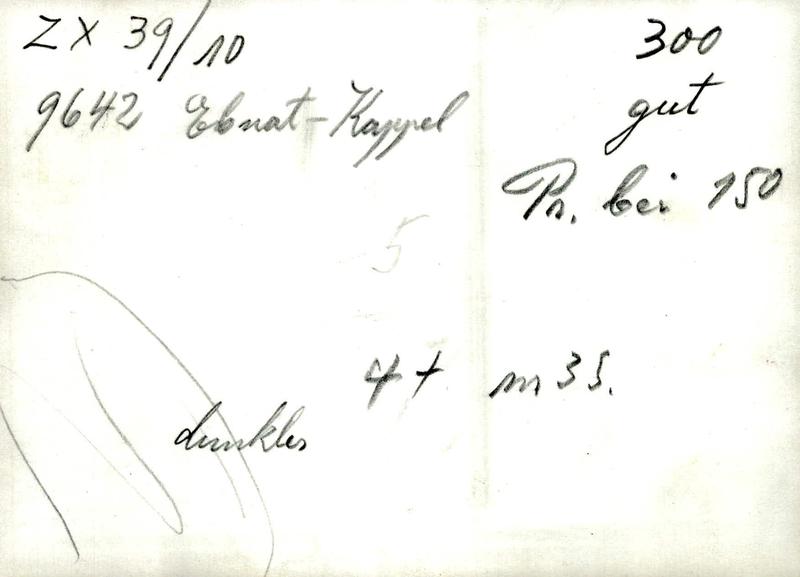 ZX 39/10
9642 Ebnat-Kappel
300
gut
Pr. bei 150
5
4+ m 35.
dunkler